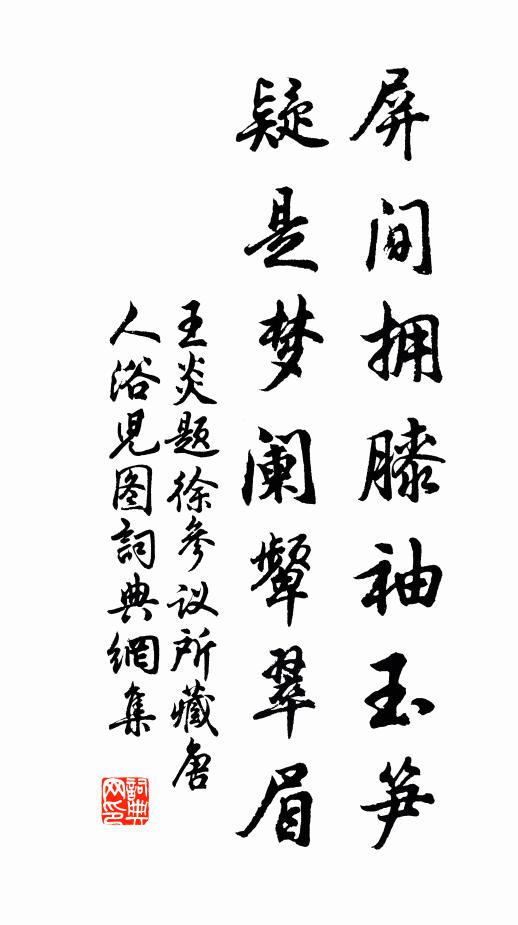 屏间拥膝袖玉笋
疑是梦阑颦翠眉
王炎题徐参议所藏唐
人浴児图词典網集
詞典
网印